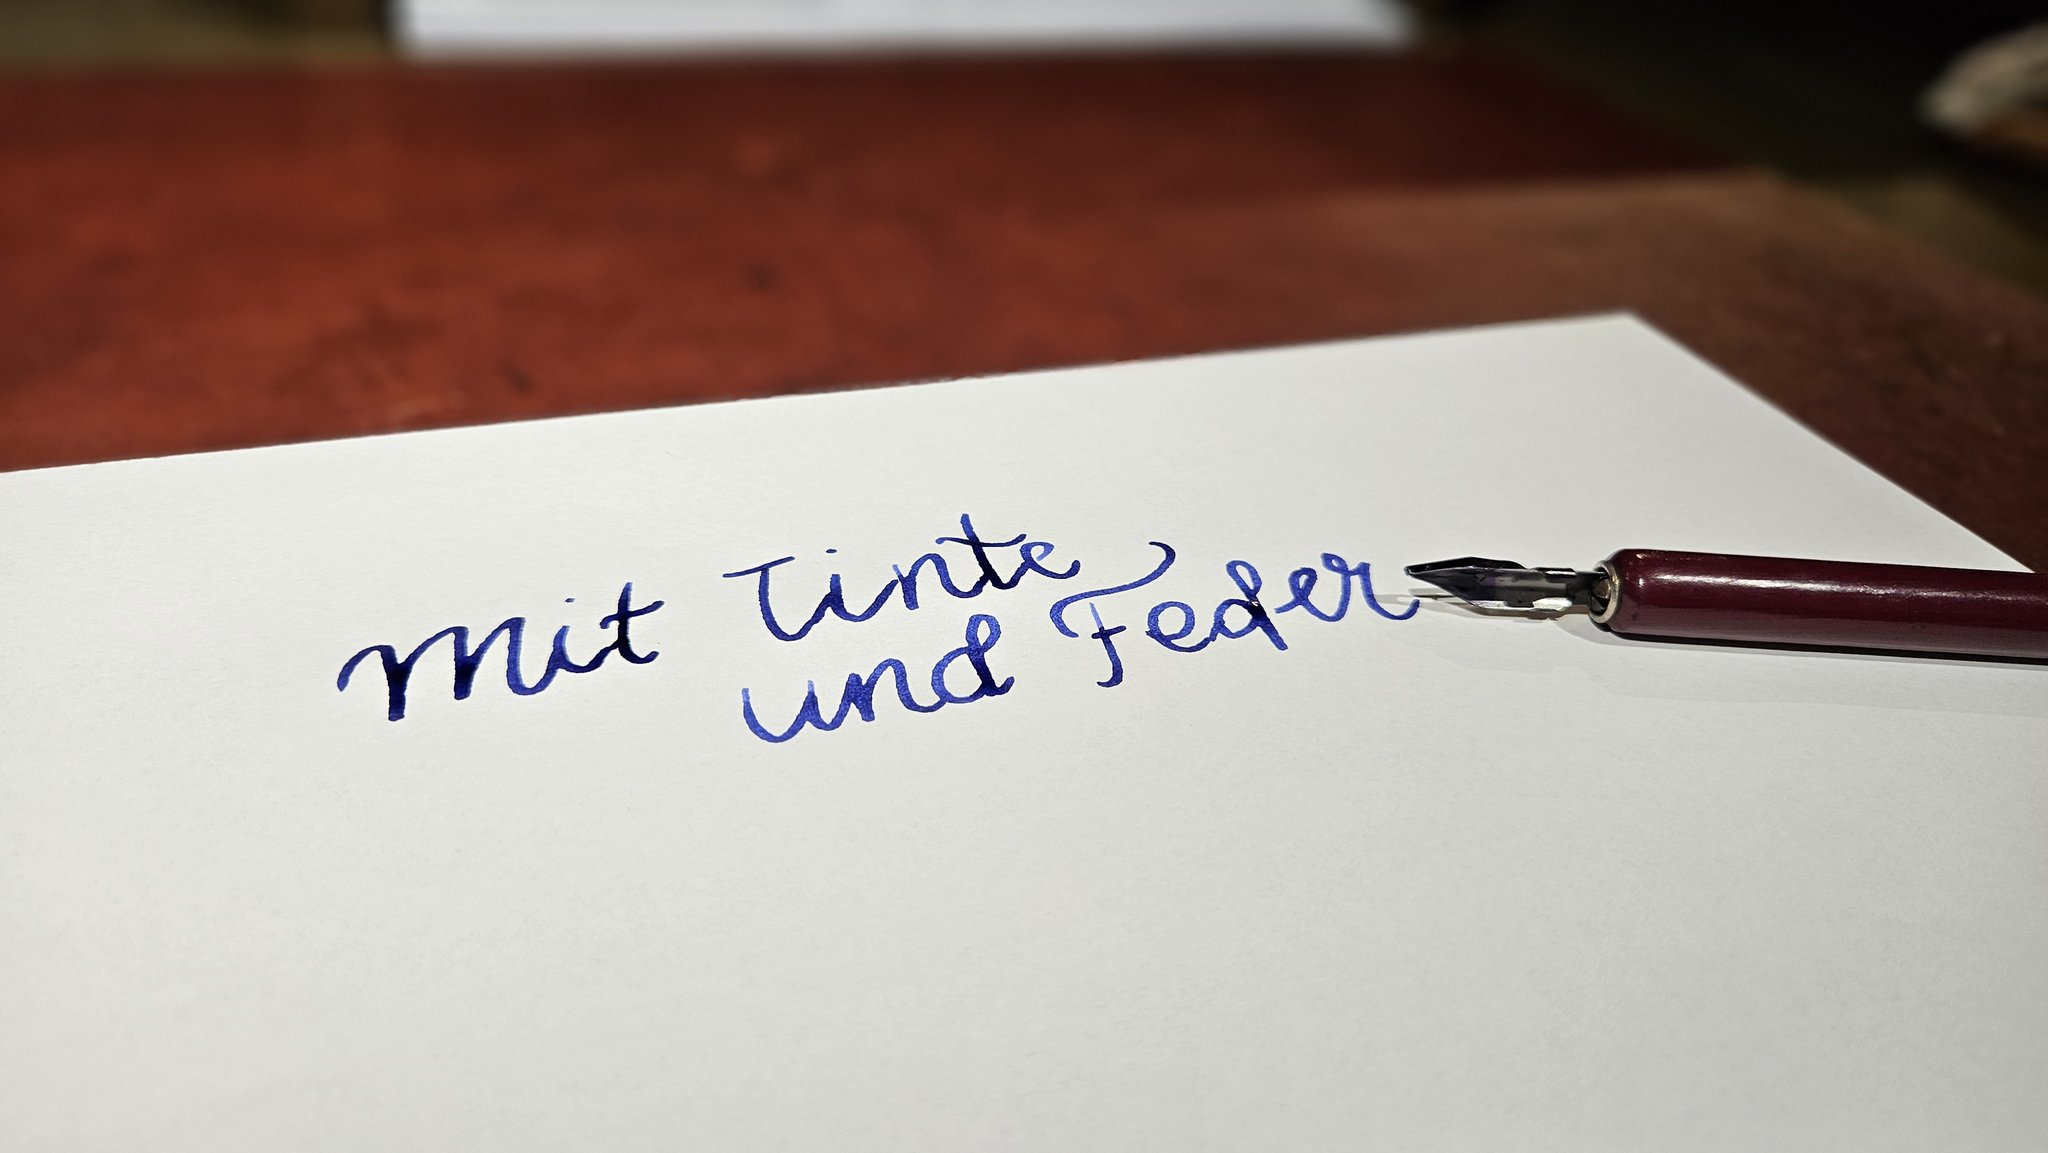 Mit Tinte
und Feder